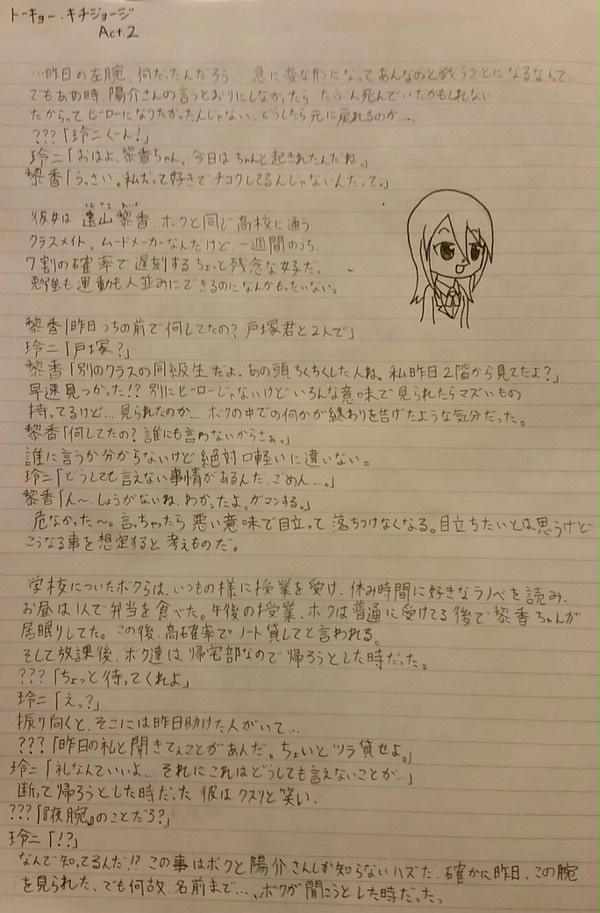 トーキョー・キチジョージ
Act.2
…昨日の左腕、何だったんだろう 急に変な形になってあんなのと戦うことになるなんて
でもあの時、陽介さんの言うとおりにしなかったら たぶん死んでいたかもしれない
だからってヒーローになりたかったんじゃない、どうしたら元に戻れるのか…、
???「玲二くーん!」
玲二「おはよ、黎香ちゃん、今日はちゃんと起きれたんだね。」
黎香「うっさい。私だって好きでチコクしてるんじゃないんだって。」
彼女は 遠山黎香 ボクと同じ高校に通う
クラスメイト、ムードメーカーなんだけど、一週間のうち、
7割の確率で遅刻するちょっと残念な女子だ、
勉強も運動も人並みにできるのになんかもったいない。
黎香「昨日うちの前で何してたの?戸塚君と2人で」
玲二「戸塚?」
黎香「別のクラスの同級生だよ。あの頭ちくちくした人ね。私昨日2階から見てたよ?」
早速見つかった!?別にヒーローじゃないけどいろんな意味で見られたらマズいもの
持ってるけど…見られたのか…ボクの中での何かが終わりを告げたような気分だった。
黎香「何してたの?誰にも言わないからさぁ。」
誰に言うか分からないけど絶対口軽いに違いない。
玲二「どうしても言えない事情があるんだ、ごめん…。」
黎香「ん〜、しょうがないね、わかったよ。ガマンする。」
危なかった〜。言っちゃったら悪い意味で目立って落ちつけなくなる。目立ちたいとは思うけど
こうなる事を想定すると考えものだ。
学校についたボクらは、いつもの様に授業を受け、休み時間に好きなラノベを読み、
お昼は1人で弁当を食べた。午後の授業、ボクは普通に受けてる後で黎香ちゃんが
居眠りしてた。この後、高確率でノート貸してと言われる。
そして放課後、ボク達は帰宅部なので帰ろうとした時だった。
???「ちょっと待ってくれよ」
玲二「えっ?」
振り向くと、そこには昨日助けた人がいて…
???「昨日の礼と聞きてぇことがあんだ。ちょいとツラ貸せよ。」
玲二「礼なんていいよ…それにこれはどうしても言えないことが…」
断って帰ろうとした時だった 彼はクスリと笑い、
???「『夜腕』のことだろ?」
玲二「!?」
なんで知ってるんだ!?この事はボクと陽介さんしか知らないハズだ、確かに昨日、この腕
を見られた、でも何故、名前まで…、ボクが聞こうとした時だった。